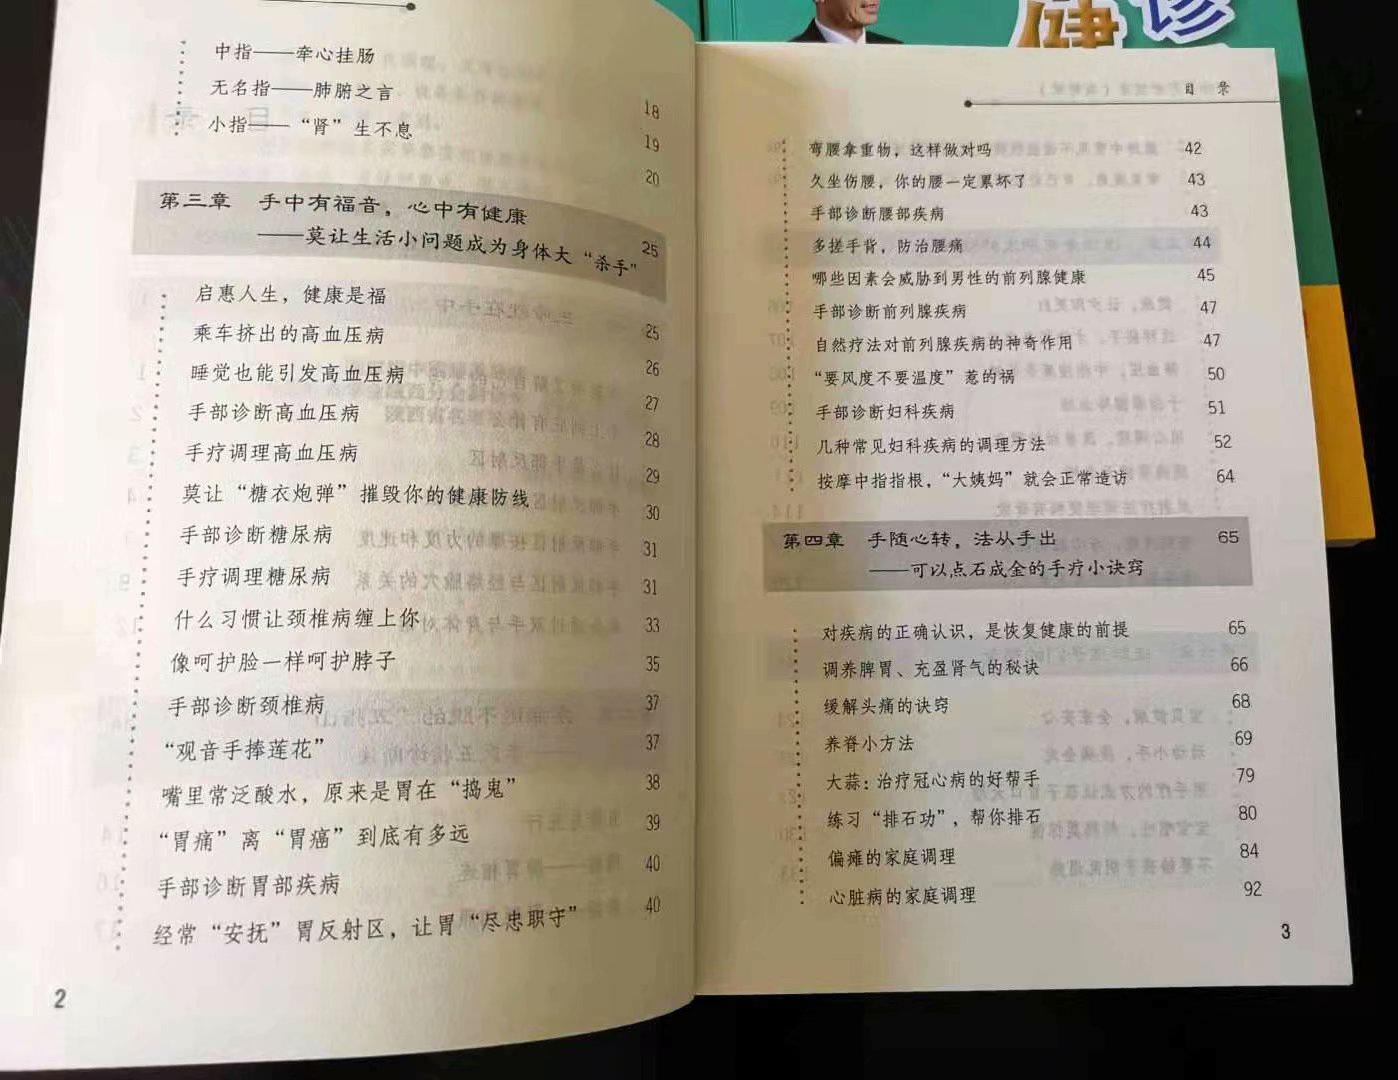 中指——牵心挂肠 18
无名指——肺腑之言 19
小指——“肾”生不息 20
第三章 手中有福音，心中有健康
——莫让生活小问题成为身体大“杀手” 25
启惠人生，健康是福 25
乘车挤出的高血压病 26
睡觉也能引发高血压病 27
手部诊断高血压病 28
手疗调理高血压病 29
莫让“糖衣炮弹”摧毁你的健康防线 30
手部诊断糖尿病 31
手疗调理糖尿病 31
什么习惯让颈椎病缠上你 33
像呵护脸一样呵护脖子 35
手部诊断颈椎病 37
“观音手捧莲花” 37
嘴里常泛酸水，原来是胃在“捣鬼” 38
“胃痛”离“胃癌”到底有多远 39
手部诊断胃部疾病 40
经常“安抚”胃反射区，让胃“尽忠职守” 40
2
健
诊
目 录
弯腰拿重物，这样做对吗 42
久坐伤腰，你的腰一定累坏了 43
手部诊断腰部疾病 43
多搓手背，防治腰痛 44
哪些因素会威胁到男性的前列腺健康 45
手部诊断前列腺疾病 47
自然疗法对前列腺疾病的神奇作用 47
“要风度不要温度”惹的祸 50
手部诊断妇科疾病 51
几种常见妇科疾病的调理方法 52
按摩中指指根，“大姨妈”就会正常造访 64
第四章 手随心转，法从手出 65
——可以点石成金的手疗小诀窍
对疾病的正确认识，是恢复健康的前提 65
调养脾胃、充盈肾气的秘诀 66
缓解头痛的诀窍 68
养脊小方法 69
大蒜：治疗冠心病的好帮手 79
练习“排石功”，帮你排石 80
偏瘫的家庭调理 84
心脏病的家庭调理 92
3